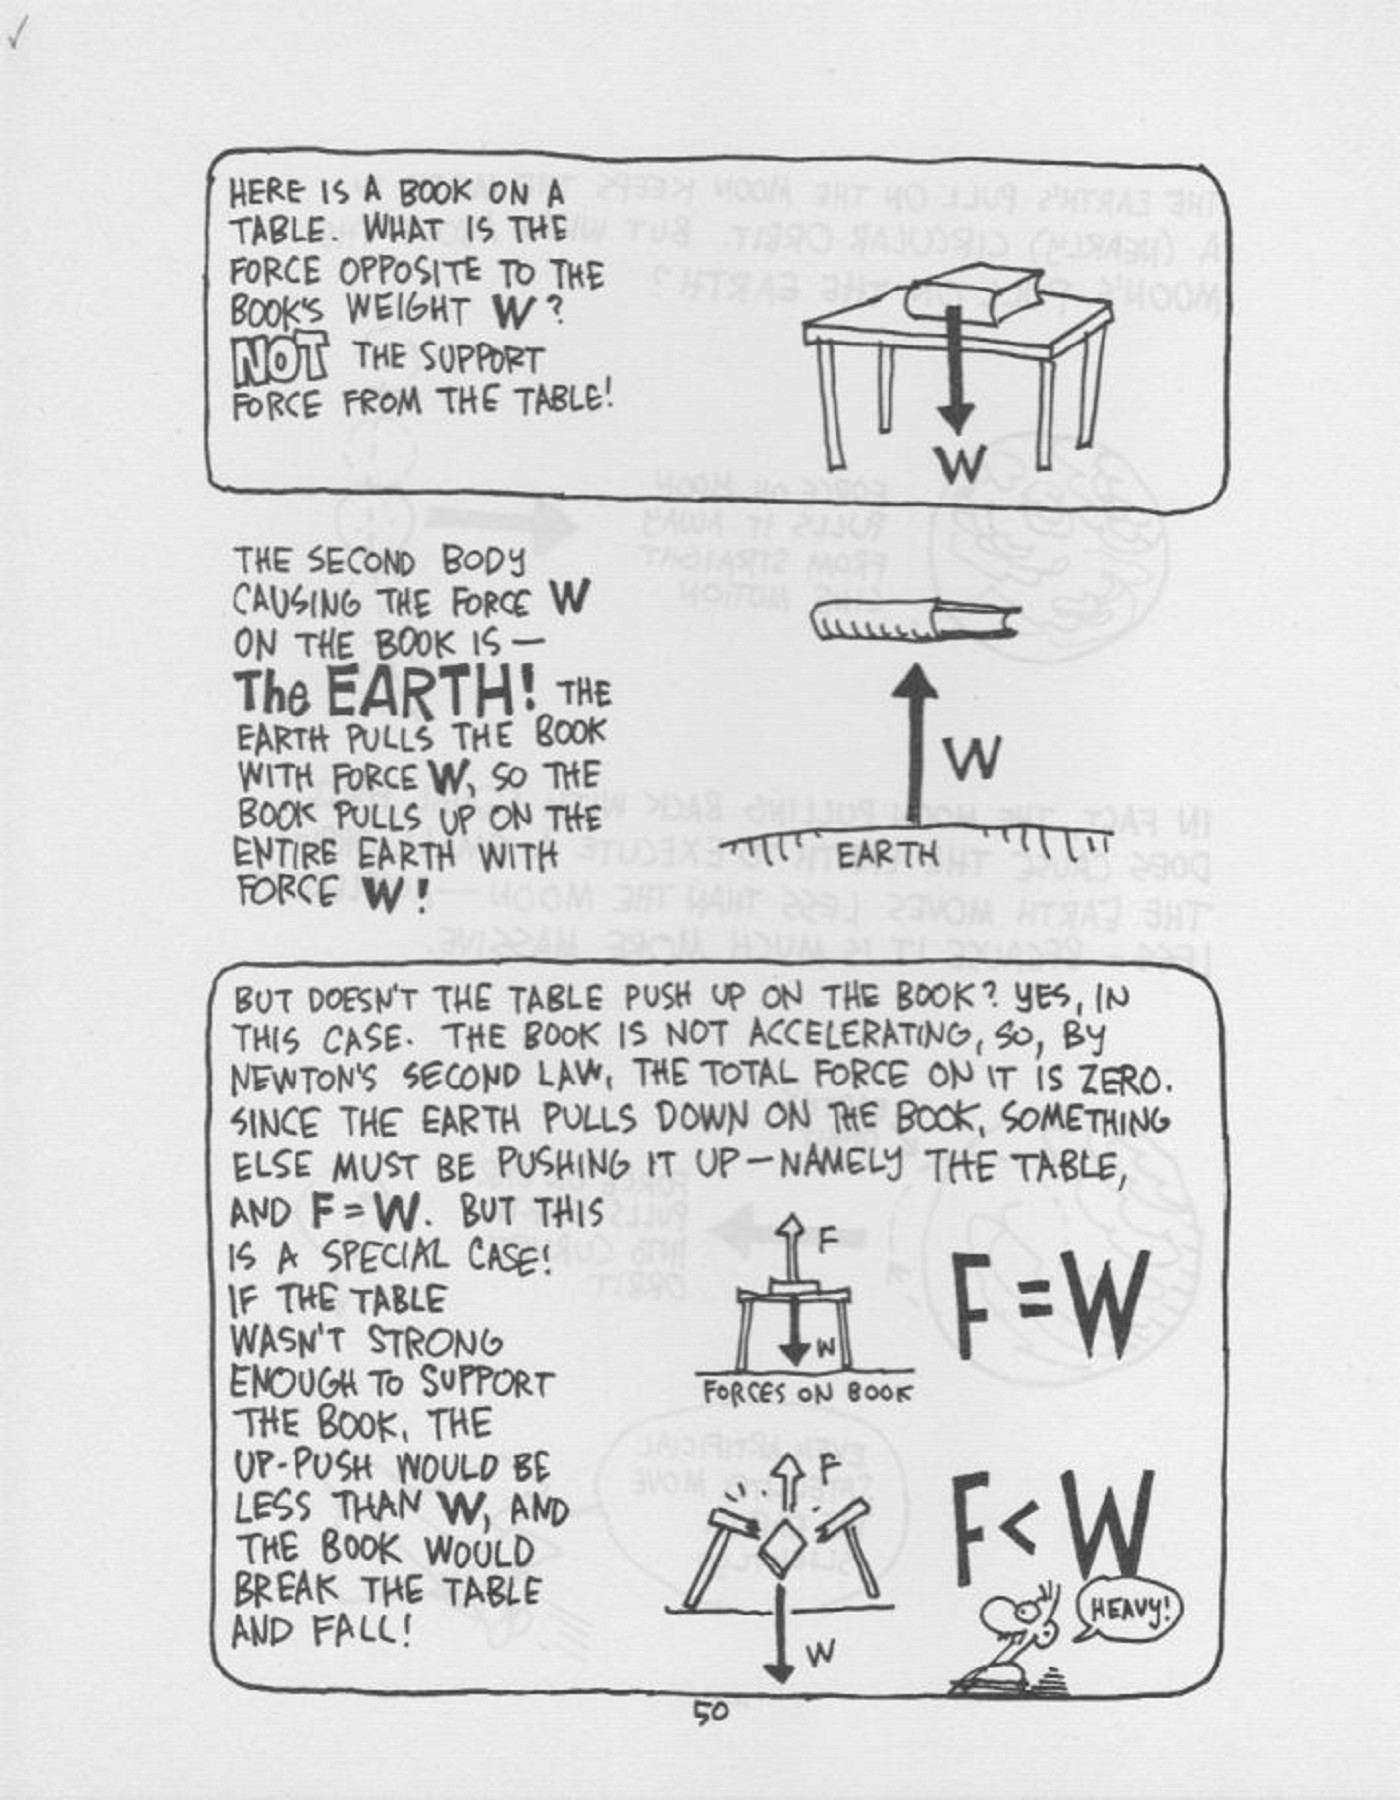 HERE IS A BOOK ON A
TABLE. WHAT IS THE
FORCE OPPOSITE TO THE
BOOK'S WEIGHT W?
NOT THE SUPPORT
FORCE FROM THE TABLE!
W
THE SECOND BODY
CAUSING THE FORCE W
ON THE BOOK IS—
The EARTH! THE
EARTH PULLS THE BOOK
WITH FORCE W, SO THE
BOOK PULLS UP ON THE
ENTIRE EARTH WITH
FORCE W!
W
EARTH
BUT DOESN'T THE TABLE PUSH UP ON THE BOOK? YES, IN
THIS CASE. THE BOOK IS NOT ACCELERATING, SO, BY
NEWTON'S SECOND LAW, THE TOTAL FORCE ON IT IS ZERO.
SINCE THE EARTH PULLS DOWN ON THE BOOK, SOMETHING
ELSE MUST BE PUSHING IT UP—NAMELY THE TABLE,
AND F=W. BUT THIS
IS A SPECIAL CASE!
IF THE TABLE
WASN'T STRONG
ENOUGH TO SUPPORT
THE BOOK, THE
UP-PUSH WOULD BE
LESS THAN W, AND
THE BOOK WOULD
BREAK THE TABLE
AND FALL!
F
W
FORCES ON BOOK
F=W
F
W
F<W
HEAVY!
50